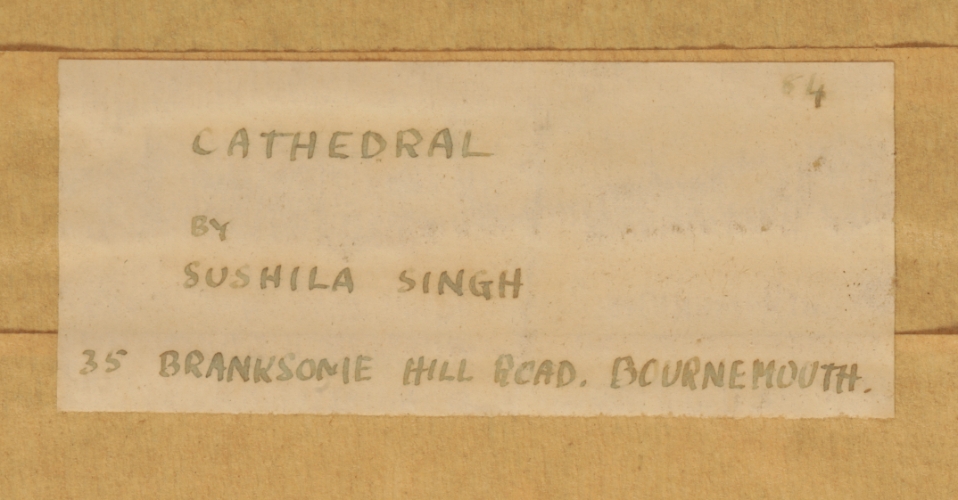 64
CATHEDRAL
BY
SUSHILA SINGH
35 BRANKSOME HILL ROAD. BOURNEMOUTH.